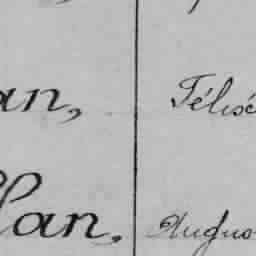 an, Félic
lan. Augus